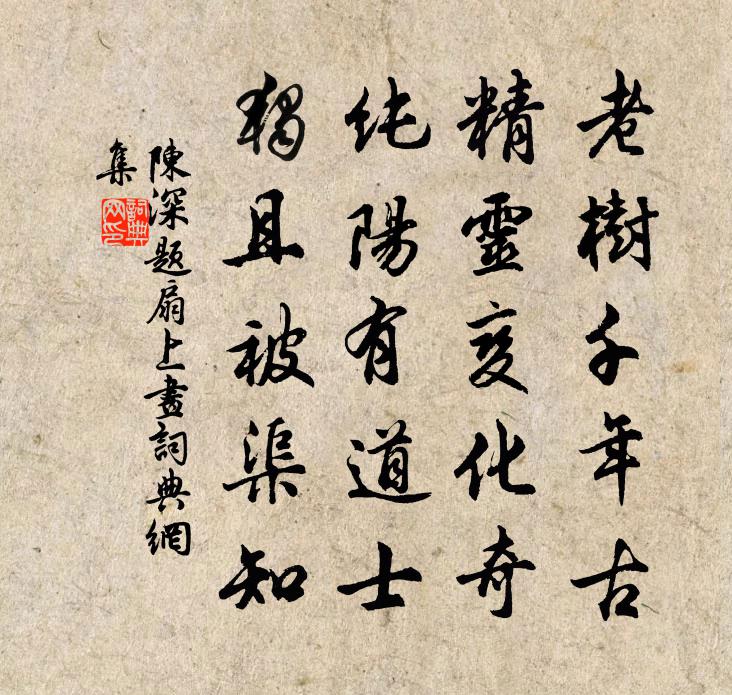 老樹千年古
精靈变化奇
纯陽有道士
獨且被渠知
陳深题扇上畫詞典網
集
詞典
网印